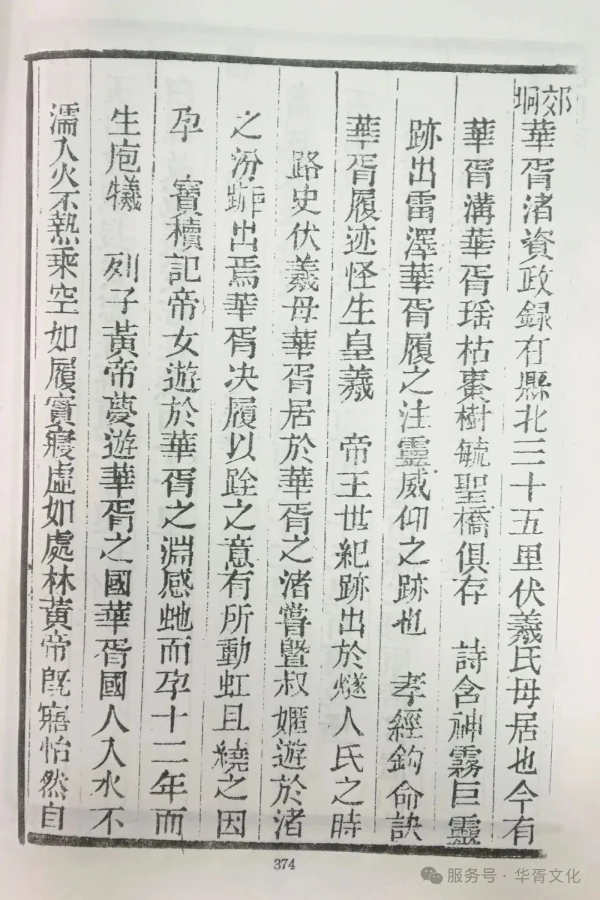 郊坰
華胥渚資政録在縣北三十五里伏羲氏母居也今有
華胥溝華胥瑶枯棗樹毓聖橋俱存　詩含神霧巨靈
跡出雷澤華胥履之注靈威仰之跡也　孝經鈎命訣
華胥履迹怪生皇羲　帝王世紀跡出於燧人氏之時
路史伏羲母華胥居於華胥之渚嘗暨叔嫟遊於渚
之汾出焉華胥决履以跧之意有所動虹且繞之因
孕　寶櫝記帝女遊於華胥之淵感虵而孕十二年而
生庖犧　列子黃帝夢遊華胥之國華胥國人入水不
濡入火不熱乘空如履實寢虛如處林黃帝旣寤怡然自
374
服务号·华胥文化